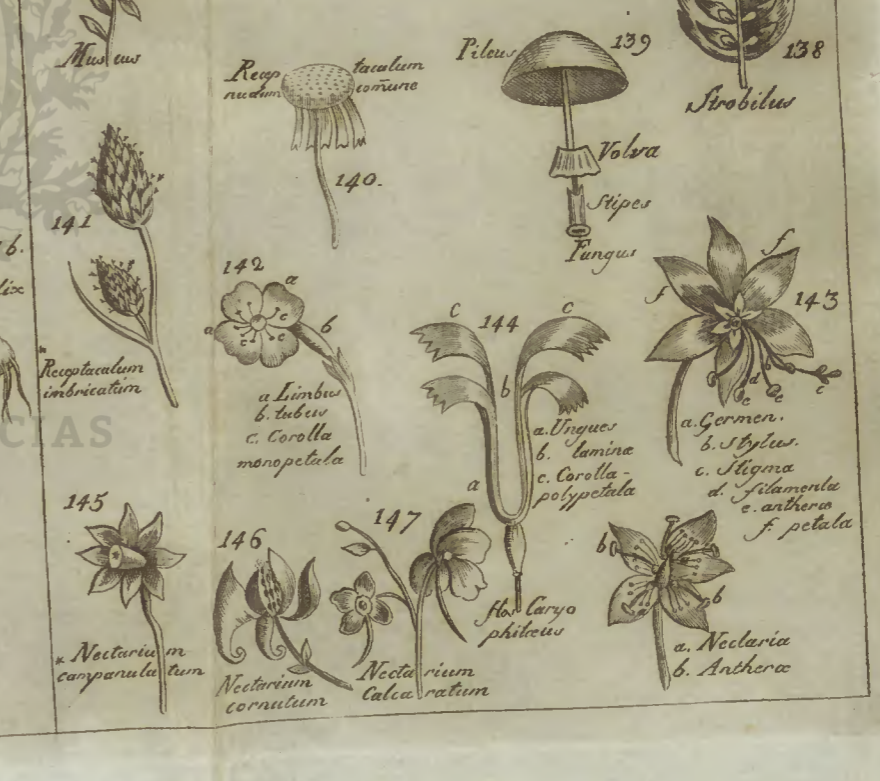 Muscus
Recep taculum
nudum comune
140.
Pileus
139
Volva
Stipes
Fungus
138
Strobilus
6.
lix
141
* Receptaculum
imbricatum
142
a
a
b
c
c
c
c
a Limbus
b. tubus
c. Corolla
monopetala
144
c
c
b
a
a. Ungues
b. laminæ
c. Corolla-
polypetala
flos Caryo
philæus
143
f
f
b
d
c
e
e
a. Germen.
b. Stylus.
c. Stigma
d. filamenta
e. antheræ
f. petala
CIAS
145
*
* Nectarium
campanulatum
146
Nectarium
cornutum
147
Nectarium
Calcaratum
b
b
a. Nectaria
b. Antheræ